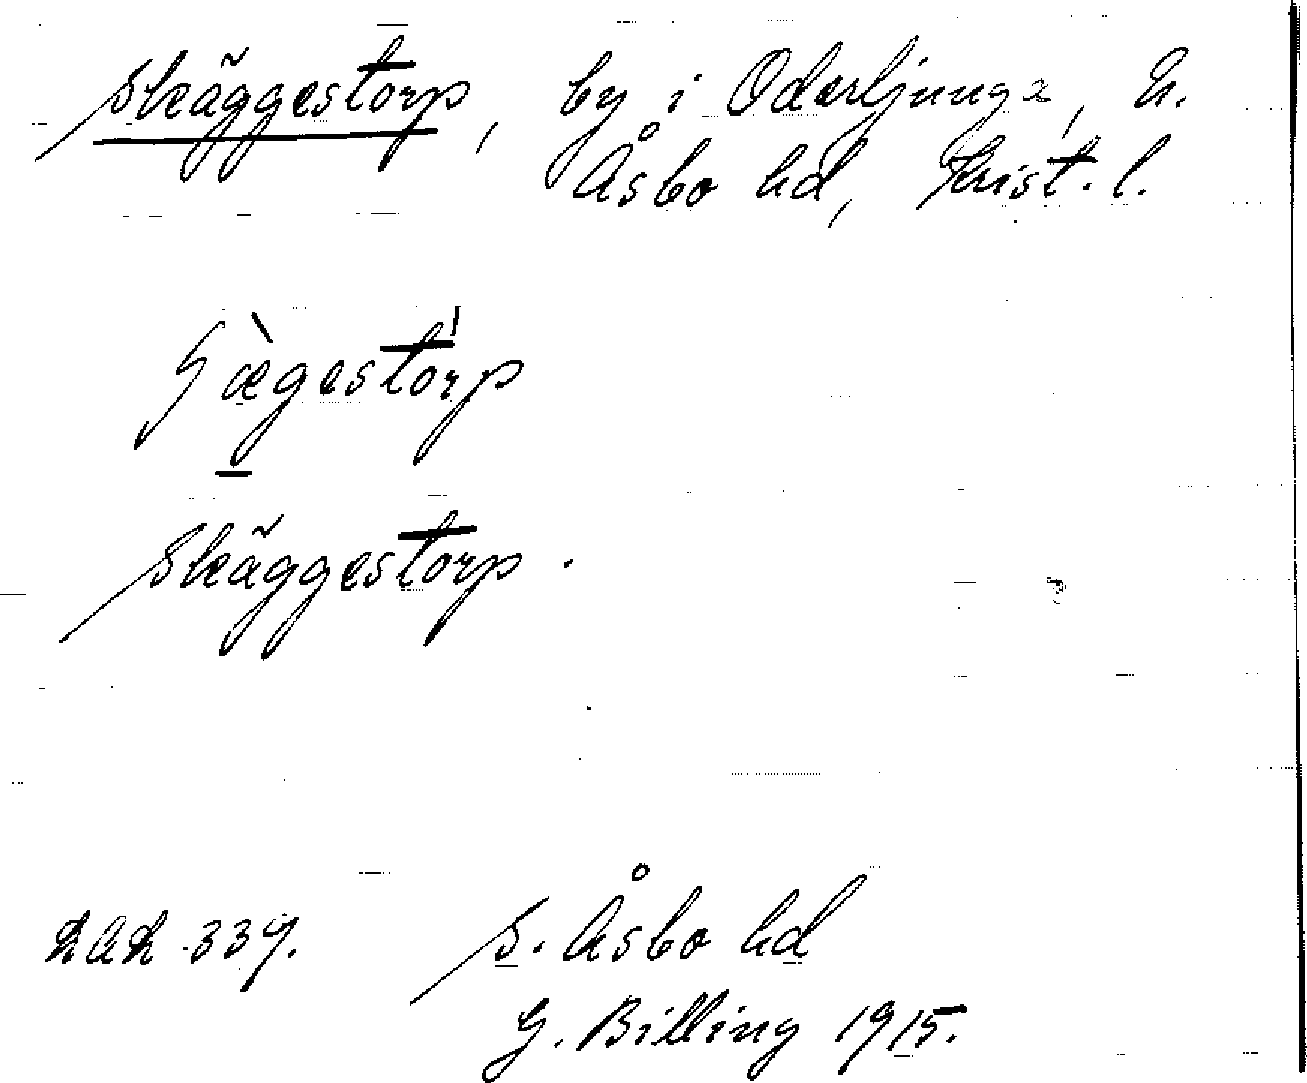 Skäggestorp, by i Oderljunga, N.
Åsbo hd, Krist. l.
ʃæ̀gestór̀p
Skäggestorp.
LAL 339. S. Åsbo hd
G. Billing 1915.